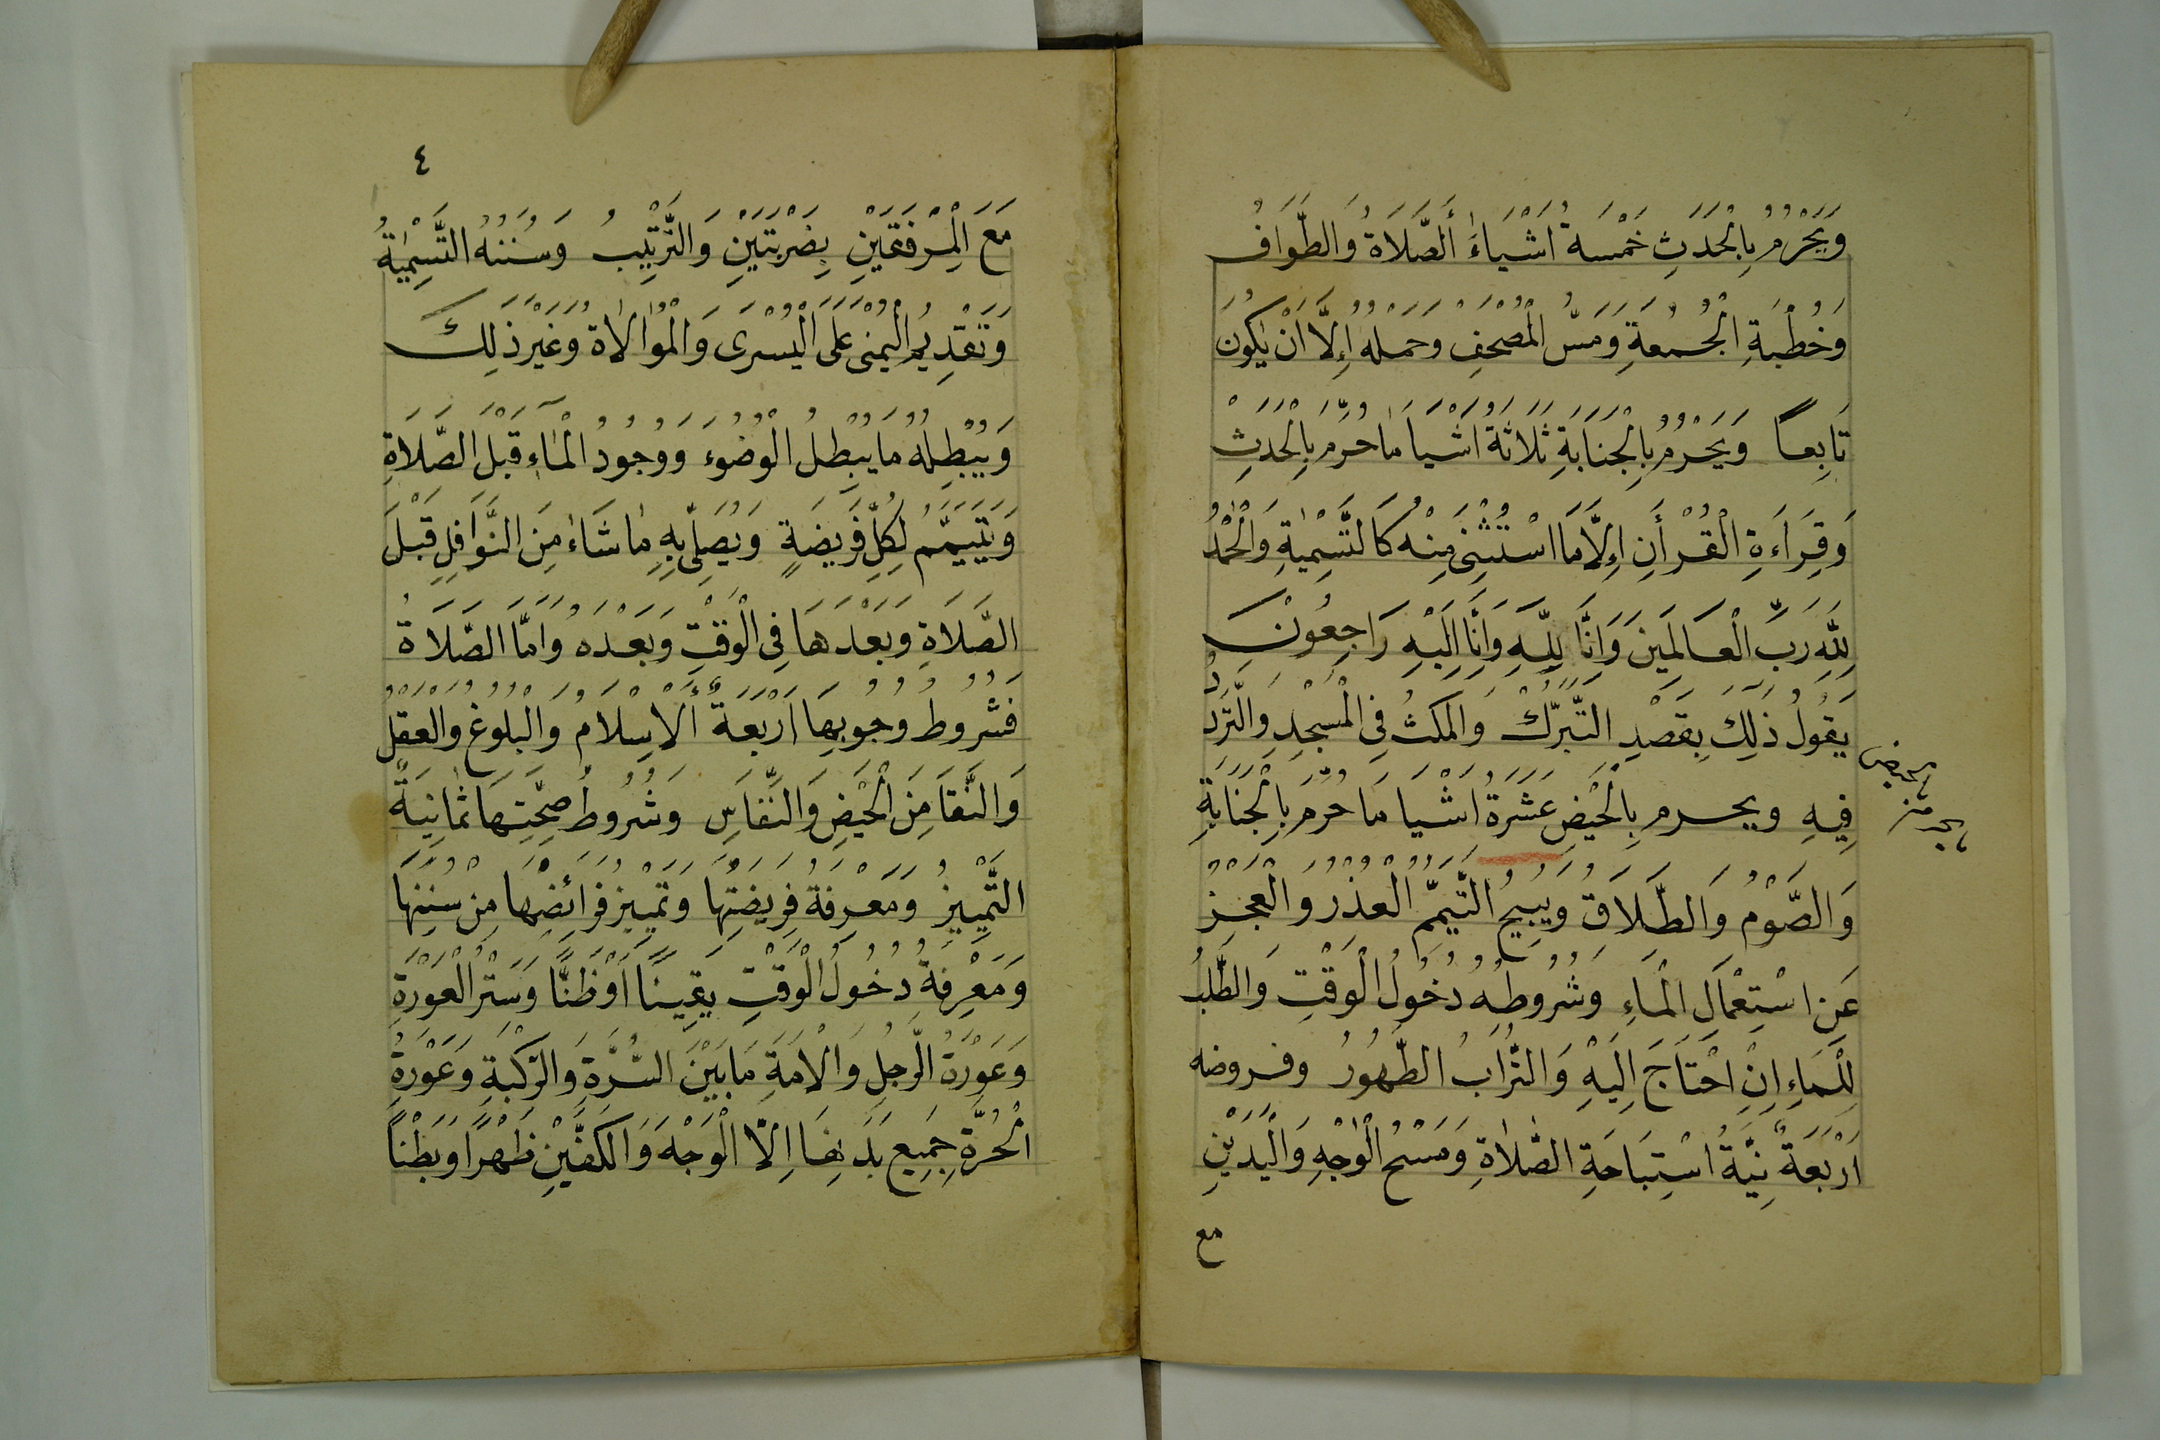 وَيَحْرُمُ بِالْحَدَثِ خَمْسَةُ اَشْيَاءَ اَلصَّلَاةُ وَالطَّوَافُ
وَخُطْبَةِ الْجُمُعَةِ وَمَسُّ الْمُصْحَفِ وَحَمْلُهُ اِلَّا اَنْ يَكُونَ
تَابِعاً وَيَحْرُمُ بِالْجَنَابَةِ ثَلَاثَةُ اَشْيَا مَا حَرُمَ بِالْحَدَثِ
وَقِرَاءَةِ الْقُرْأَنِ اِلَّا مَا اسْتُثْنِىَ مِنْهُ كَالتَّسْمِيَةِ وَالْحَمْدُ
لِلّٰهِ رَبِّ الْعَالَمِينَ وَاِنَّا لِلّٰهِ وَاِنَّا اِلَيْهِ رَاجِعُونَ
يَقُولُ ذَلِكَ بِقَصْدِ التَّبَرُّكْ وَالمَكثُ فِى الْمَسْجِدِ وَالتَّرَدُّدُ
فِيهِ ويحرم بِالْحَيْضِ عَشَرَةُ اَشْيَا مَا حَرُمَ بِالْجَنَابَةِ
الحيض
وَالصَّوْمُ وَالطَّلَاقُ وَيُبِيحُ التَّيَمُّمَ الْعُذْرُ وَالْعَجْزُ
عَنِ اسْتِعْمَالِ الْمَاءِ وَشُرُوطُهُ دُخُولُ الْوَقْتِ وَالطَّلَبُ
لِلْمَاءِ اِنِ احْتَاجَ اِلَيْهِ وَالتُّرَابُ الطَّهُورُ وفروضه
اَرْبَعَةٌ نِيَّةُ اسْتِبَاحَةِ الصَّلَاةِ وَمَسْحُ الْوَجْهِ وَالْيَدَيْنِ
مع
٤
مَعَ الْمِرْفَقَيْنِ بِضَرْبَتَيْنِ وَالتَّرْتِيبُ وَسُنَنُهُ التَّسْمِيَةُ
وَتَقْدِيمُ الْيُمْنَى عَلَى الْيُسْرَى وَالْمُوَالَاةُ وَغَيْرُ ذَلِكَ
وَيُبْطِلُهُ مَا يُبْطِلُ الْوُضُوءَ وَوُجُودُ الْمَاءِ قَبْلَ الصَّلَاةِ
وَيَتَيَمَّمُ لِكُلِّ فَرِيضَةٍ وَيُصَلِّى بِهِ مَا شَاءَ مِنَ النَّوَافِلِ قَبْلَ
الصَّلَاةِ وَبَعْدَهَا فِى الْوَقْتِ وَبَعْدَهُ وَاَمَّا الصَّلَاةُ
فَشُرُوطُ وُجُوبِهَا اَرْبَعَةٌ اَلْاِسْلَامُ وَالْبُلُوغُ وَالْعَقْلُ
وَالنَّقَا مِنَ الْحَيْضِ وَالنِّفَاسِ وَشُرُوطُ صِحَّتِهَا ثَمَانِيَةٌ
التَّمْيِيزُ وَمَعْرِفَةُ فَرِيضَتِهَا وَتَمْيِيزُ فَرَائِضِهَا مِنْ سُنَنِهَا
وَمَعْرِفَةُ دُخُولِ الْوَقْتِ يَقِينًا اَوْ ظَنًّا وَسَتْرُ الْعَوْرَةِ
وَعَوْرَةُ الرَّجُلِ وَالْاَمَةِ مَا بَيْنَ السُّرَّةِ وَالرُّكْبَةِ وَعَوْرَةُ
الْحُرَّةِ جَمِيعُ بَدَنِهَا اِلَّا الْوَجْهَ وَالْكَفَّيْنِ ظَهْرًا وَبَطْنًا